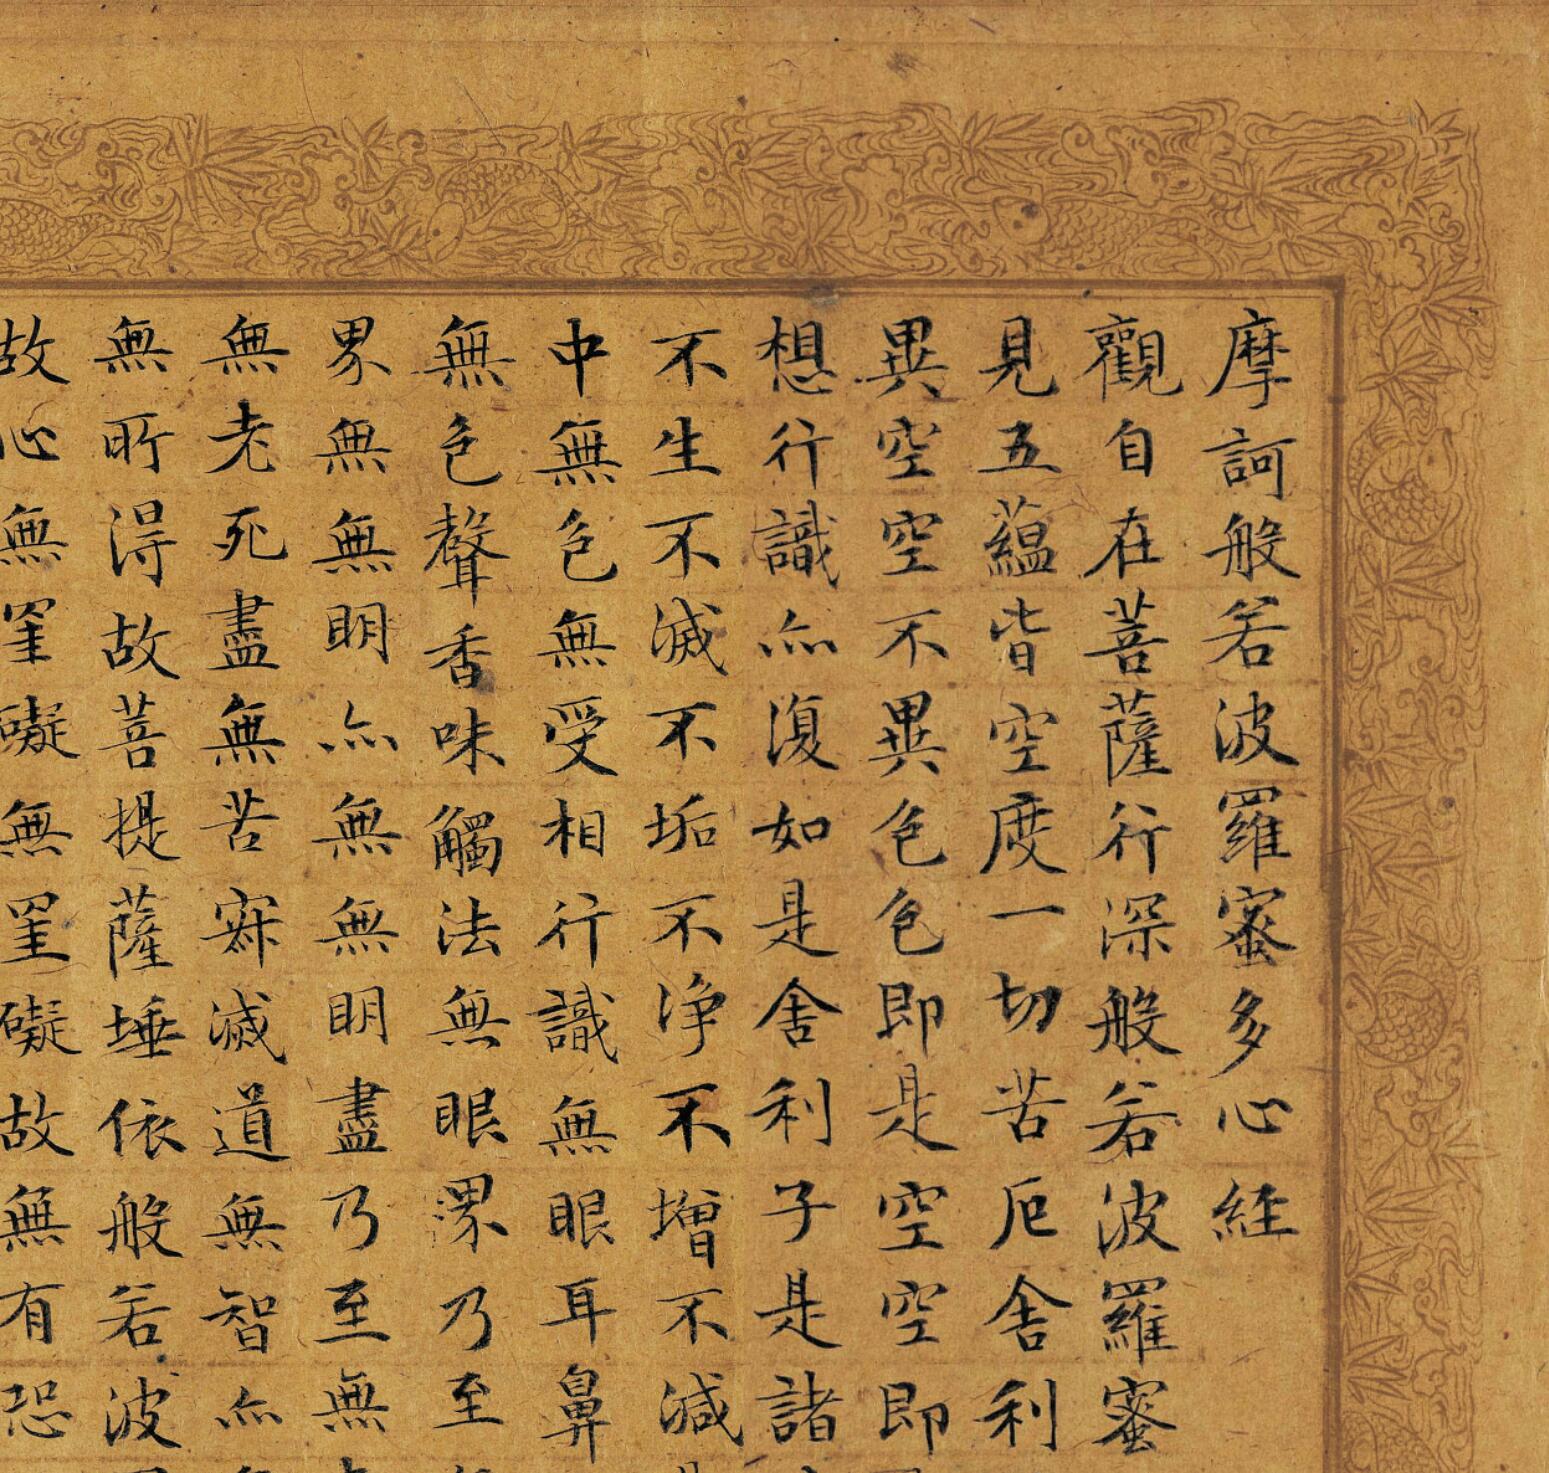 摩訶般若波羅蜜多心経
觀自在菩薩行深般若波羅蜜
見五蘊皆空度一切苦厄舎利
異空空不異色色即是空空即
想行識亦復如是舎利子是諸
不生不滅不垢不浄不增不減
中無色無受相行識無眼耳鼻
無色聲香味觸法無眼界乃至
界無無明亦無無明盡乃至無
無老死盡無苦寂滅道無智亦
無所得故菩提薩埵依般若波
故心無罣礙無罣礙故無有恐